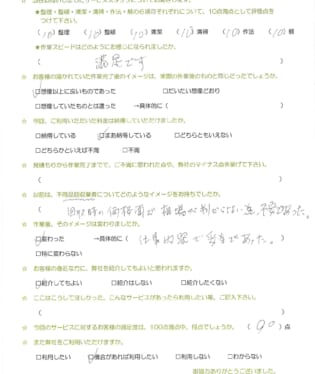 ★整理・整頓・清潔・清掃・作法・躾の6項目それぞれについて、10点満点として評価点を
つけて下さい。
(10)整理 (10)整頓 (10)清潔 (10)清掃 (10)作法 (10)躾
★作業スピードはどのようにお感じになられましたか。
( 満足です )
☆お客様の描かれていた作業完了後のイメージは、実際の作業後のものと同じだったでしょうか。
□想像以上に良いものであった □だいたい想像どおり
□想像していたものとは違った →具体的に( )
☆今回、ご利用いただいた料金は納得していただけましたか。
□納得している □まあ納得している □どちらともいえない
□どちらかといえば不満 □不満
☆見積もりから作業完了までで、ご不満に思われた点や、弊社のマイナス点を挙げて下さい。
( )
☆お前は、不用品回収業者についてどのようなイメージをお持ちでしたか。
( 回収時の価格面が相場が判らない為、不安があった。 )
☆作業後、そのイメージは変わりましたか。
□変わった →具体的に( 仕事内容で )
□特に変わらない
☆お客様の身近な方に、弊社を紹介してもよいと思われますか。
□紹介してもよい □紹介はしない □紹介したくない
☆ここはこうしてほしかった、こんなサービスがあったら利用したい等、ご記入下さい。
( )
☆今回のサービスに対するお客様の満足度は、100点満点中、何点でしょうか。 (90)点
☆また弊社をご利用いただけますか。
□利用したい □機会があれば利用したい □利用しない □わからない
御協力ありがとうございました。